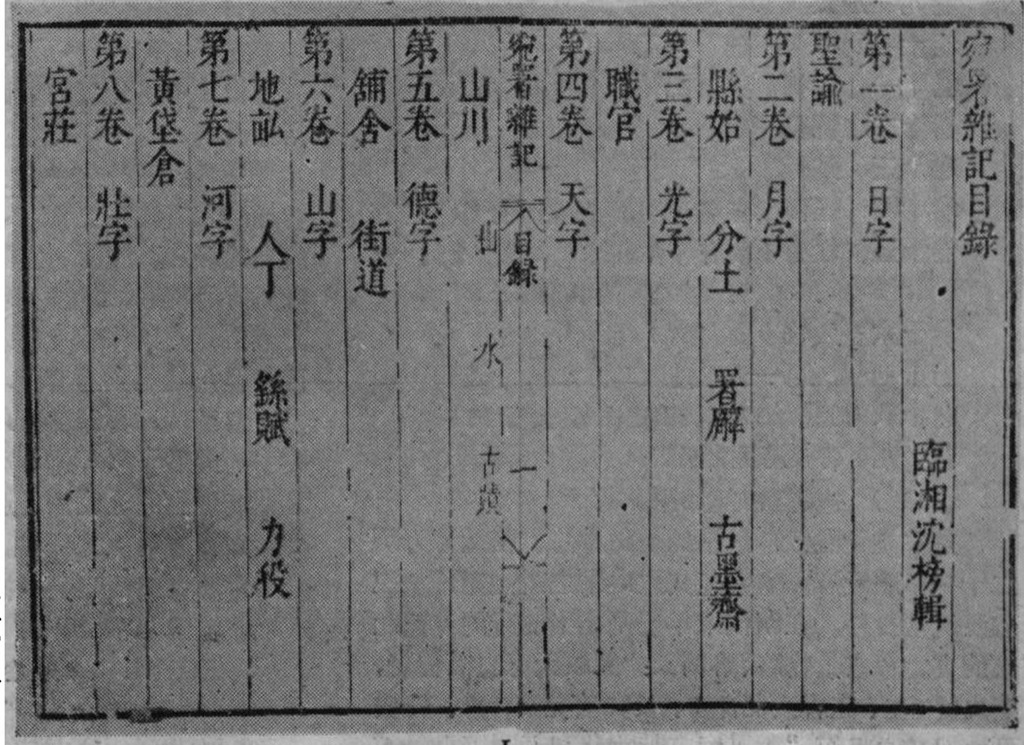 宛署雜記目錄
臨湘沈榜輯
第一卷 日字
聖諭
第二卷 月字
縣始 分土 署廨 古墨齋
第三卷 光字
職官
第四卷 天字
宛署雜記 目錄 一
山川 山 水 古蹟
第五卷 德字
舖舍 街道
第六卷 山字
地畝 人丁 繇賦 力役
第七卷 河字
黃垡倉
第八卷 壯字
宮莊